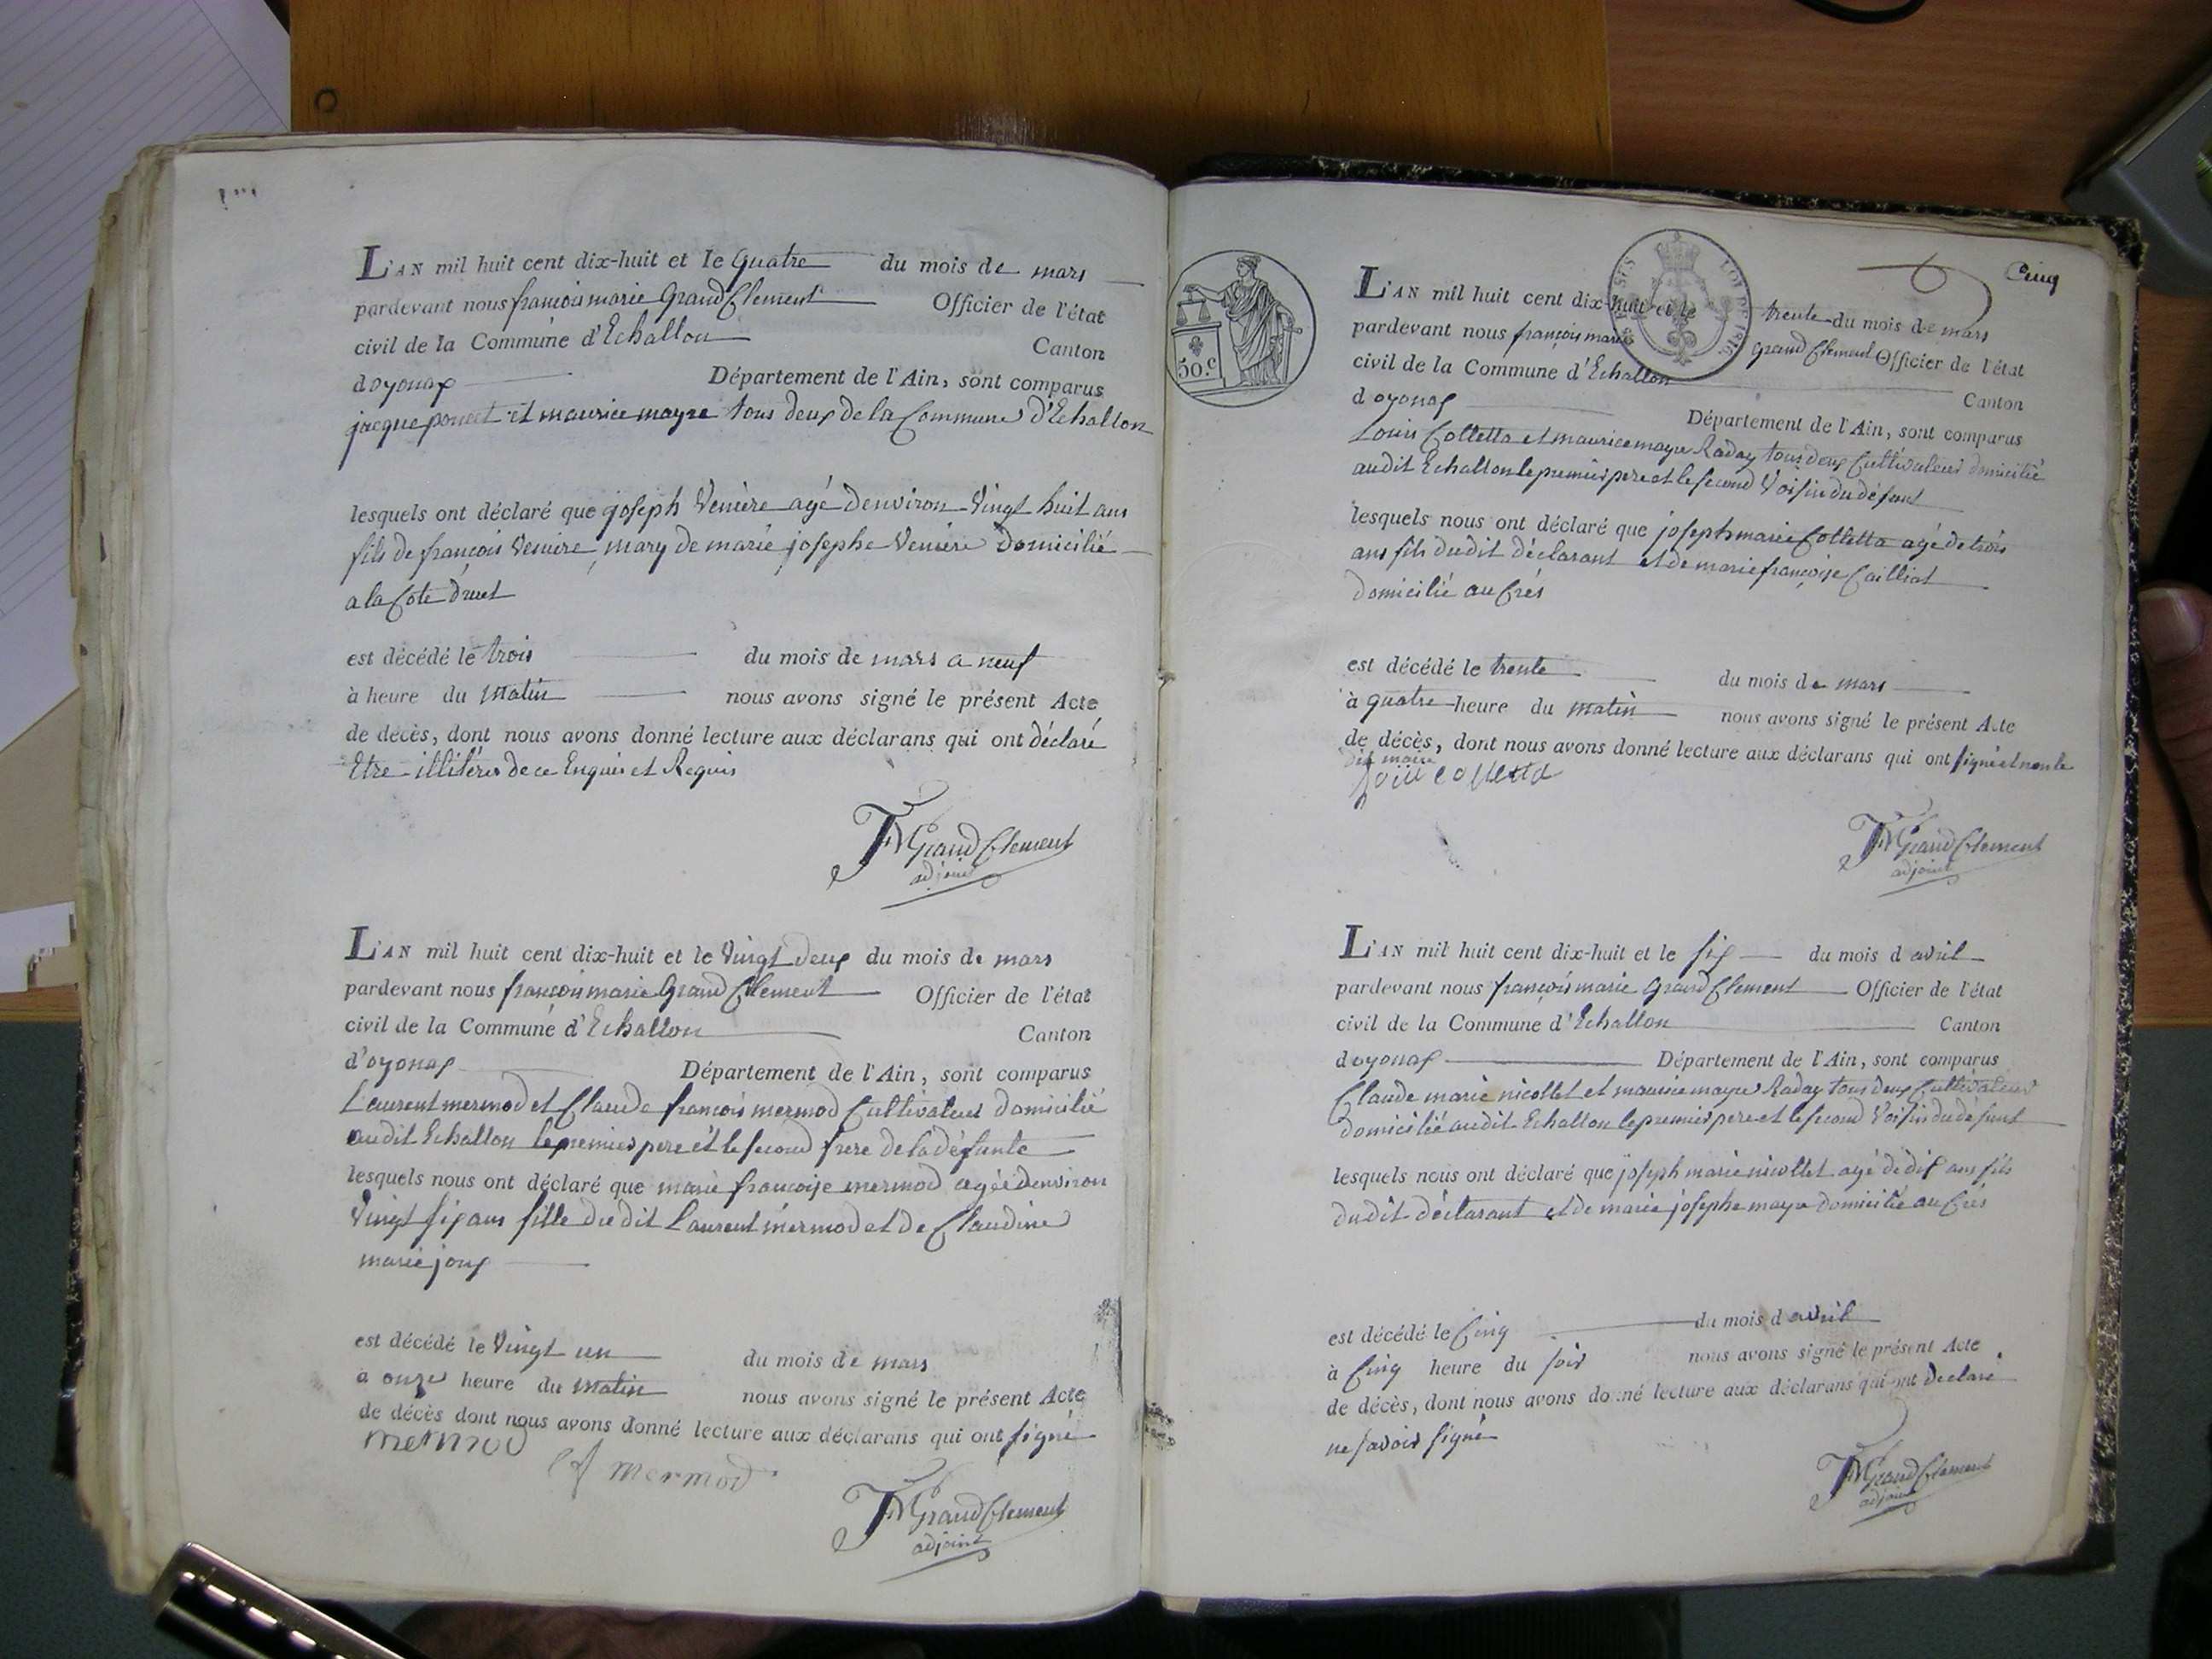 L'AN mil huit cent dix-huit et le quatre du mois de mars
pardevant nous francois marie Grand Clement Officier de l'état
civil de la Commune d'Echallon Canton
doyonax Département de l'Ain, sont comparus
jacque poncet et maurice mayre tous deux de la Commune d'Echallon
lesquels ont déclaré que joseph Veniere agé denviron Vingt huit ans
fils de francois Veniere, mary de marie josephe Veniere Domicilié
a la Cote
est décédé le trois du mois de mars a neuf
à heure du matin nous avons signé le présent Acte
de décès, dont nous avons donné lecture aux déclarans qui ont déclaré
Etre illitéres de ce Enquis et Requis
FM Grand Clement
adjoint
L'AN mil huit cent dix-huit et le Vingt deux du mois de mars
pardevant nous francois marie Grand Clement Officier de l'état
civil de la Commune d'Echallon Canton
d'oyonax Département de l'Ain, sont comparus
Laurent mermod et Claude francois mermod Cultivateur domicilié
audit Echallon le premier pere et le second frere de la défunte
lesquels nous ont déclaré que marie francoise mermod agée denviron
Vingt six ans fille du dit Laurent mermod et de Claudine
marie joux
est décédé le Vingt un du mois de mars
a onze heure du matin nous avons signé le présent Acte
de décès dont nous avons donné lecture aux déclarans qui ont signé
mermod
cf mermod
FM Grand Clement
adjoint
Cinq
50.c
LOI DE 1816.
L'AN mil huit cent dix-huit et le trente du mois de mars
pardevant nous françois marie Grand Clement Officier de l'état
civil de la Commune d'Echallon Canton
doyonax Département de l'Ain, sont comparus
Louis Colletta et maurice mayre Raday tous deux Cultivateur domicilié
audit Echallon le premier pere et le second Voisin du défunt
lesquels nous ont déclaré que joseph marie Colletta agé de trois
ans fils dudit déclarant et de marie françoise Cailliat
domicilié au Crés
est décédé le trente du mois de mars
à quatre heure du matin nous avons signé le présent Acte
de décès, dont nous avons donné lecture aux déclarans qui ont signé et non le
dit maire
Loui colletta
FM Grand Clement
adjoint
L'AN mil huit cent dix-huit et le six du mois d avril
pardevant nous françois marie Grand Clement Officier de l'état
civil de la Commune d'Echallon Canton
doyonax Département de l'Ain, sont comparus
Claude marie nicollet et maurice mayre Raday tous deux Cultivateur
domicilié audit Echallon le premier pere et le second Voisin du defunt
lesquels nous ont déclaré que joseph marie nicollet agé de dix ans fils
dudit déclarant et de marie josephe mayre domicilié au Crés
est décédé le Cinq du mois d avril
à Cinq heure du soir nous avons signé le présent Acte
de décès, dont nous avons donné lecture aux déclarans qui ont Declaré
ne savoir signé
FM Grand Clement
adjoint